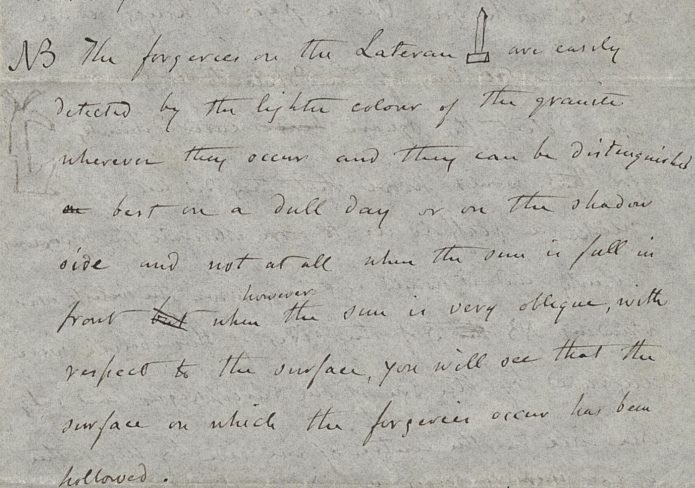 NB The forgeries on the Lateran are easily
detected by the lighter colour of the granite
wherever they occur and they can be distinguished
best on a dull day or on the shadow
side and not at all when the sun is full in
front but when however the sun is very oblique, with
respect to the surface, you will see that the
surface on which the forgeries occur has been
hollowed.